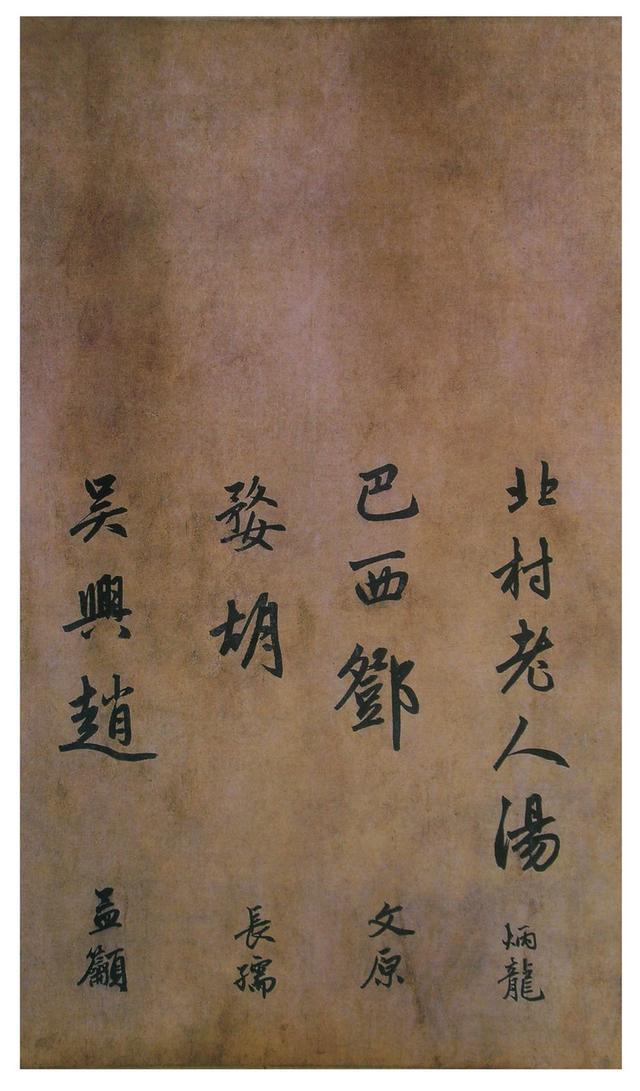 北村老人湯炳龍
巴西鄧文原
婺胡長孺
吴興趙孟籲